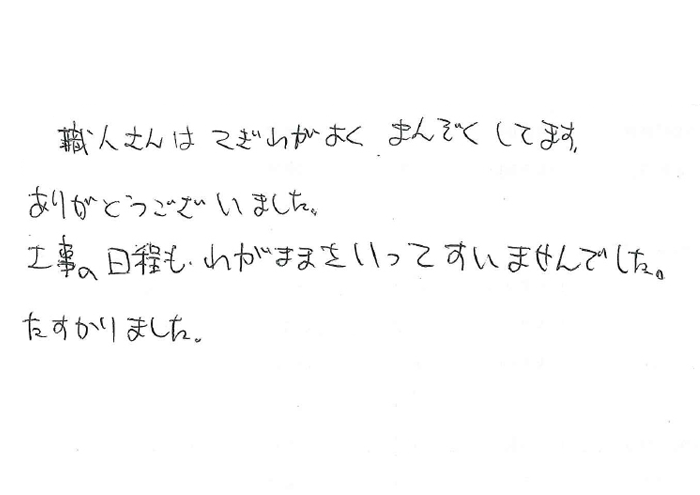 職人さんは てぎわがよく まんぞくしてます。
ありがとうございました。
工事の日程も、わがままをいってすいませんでした。
たすかりました。